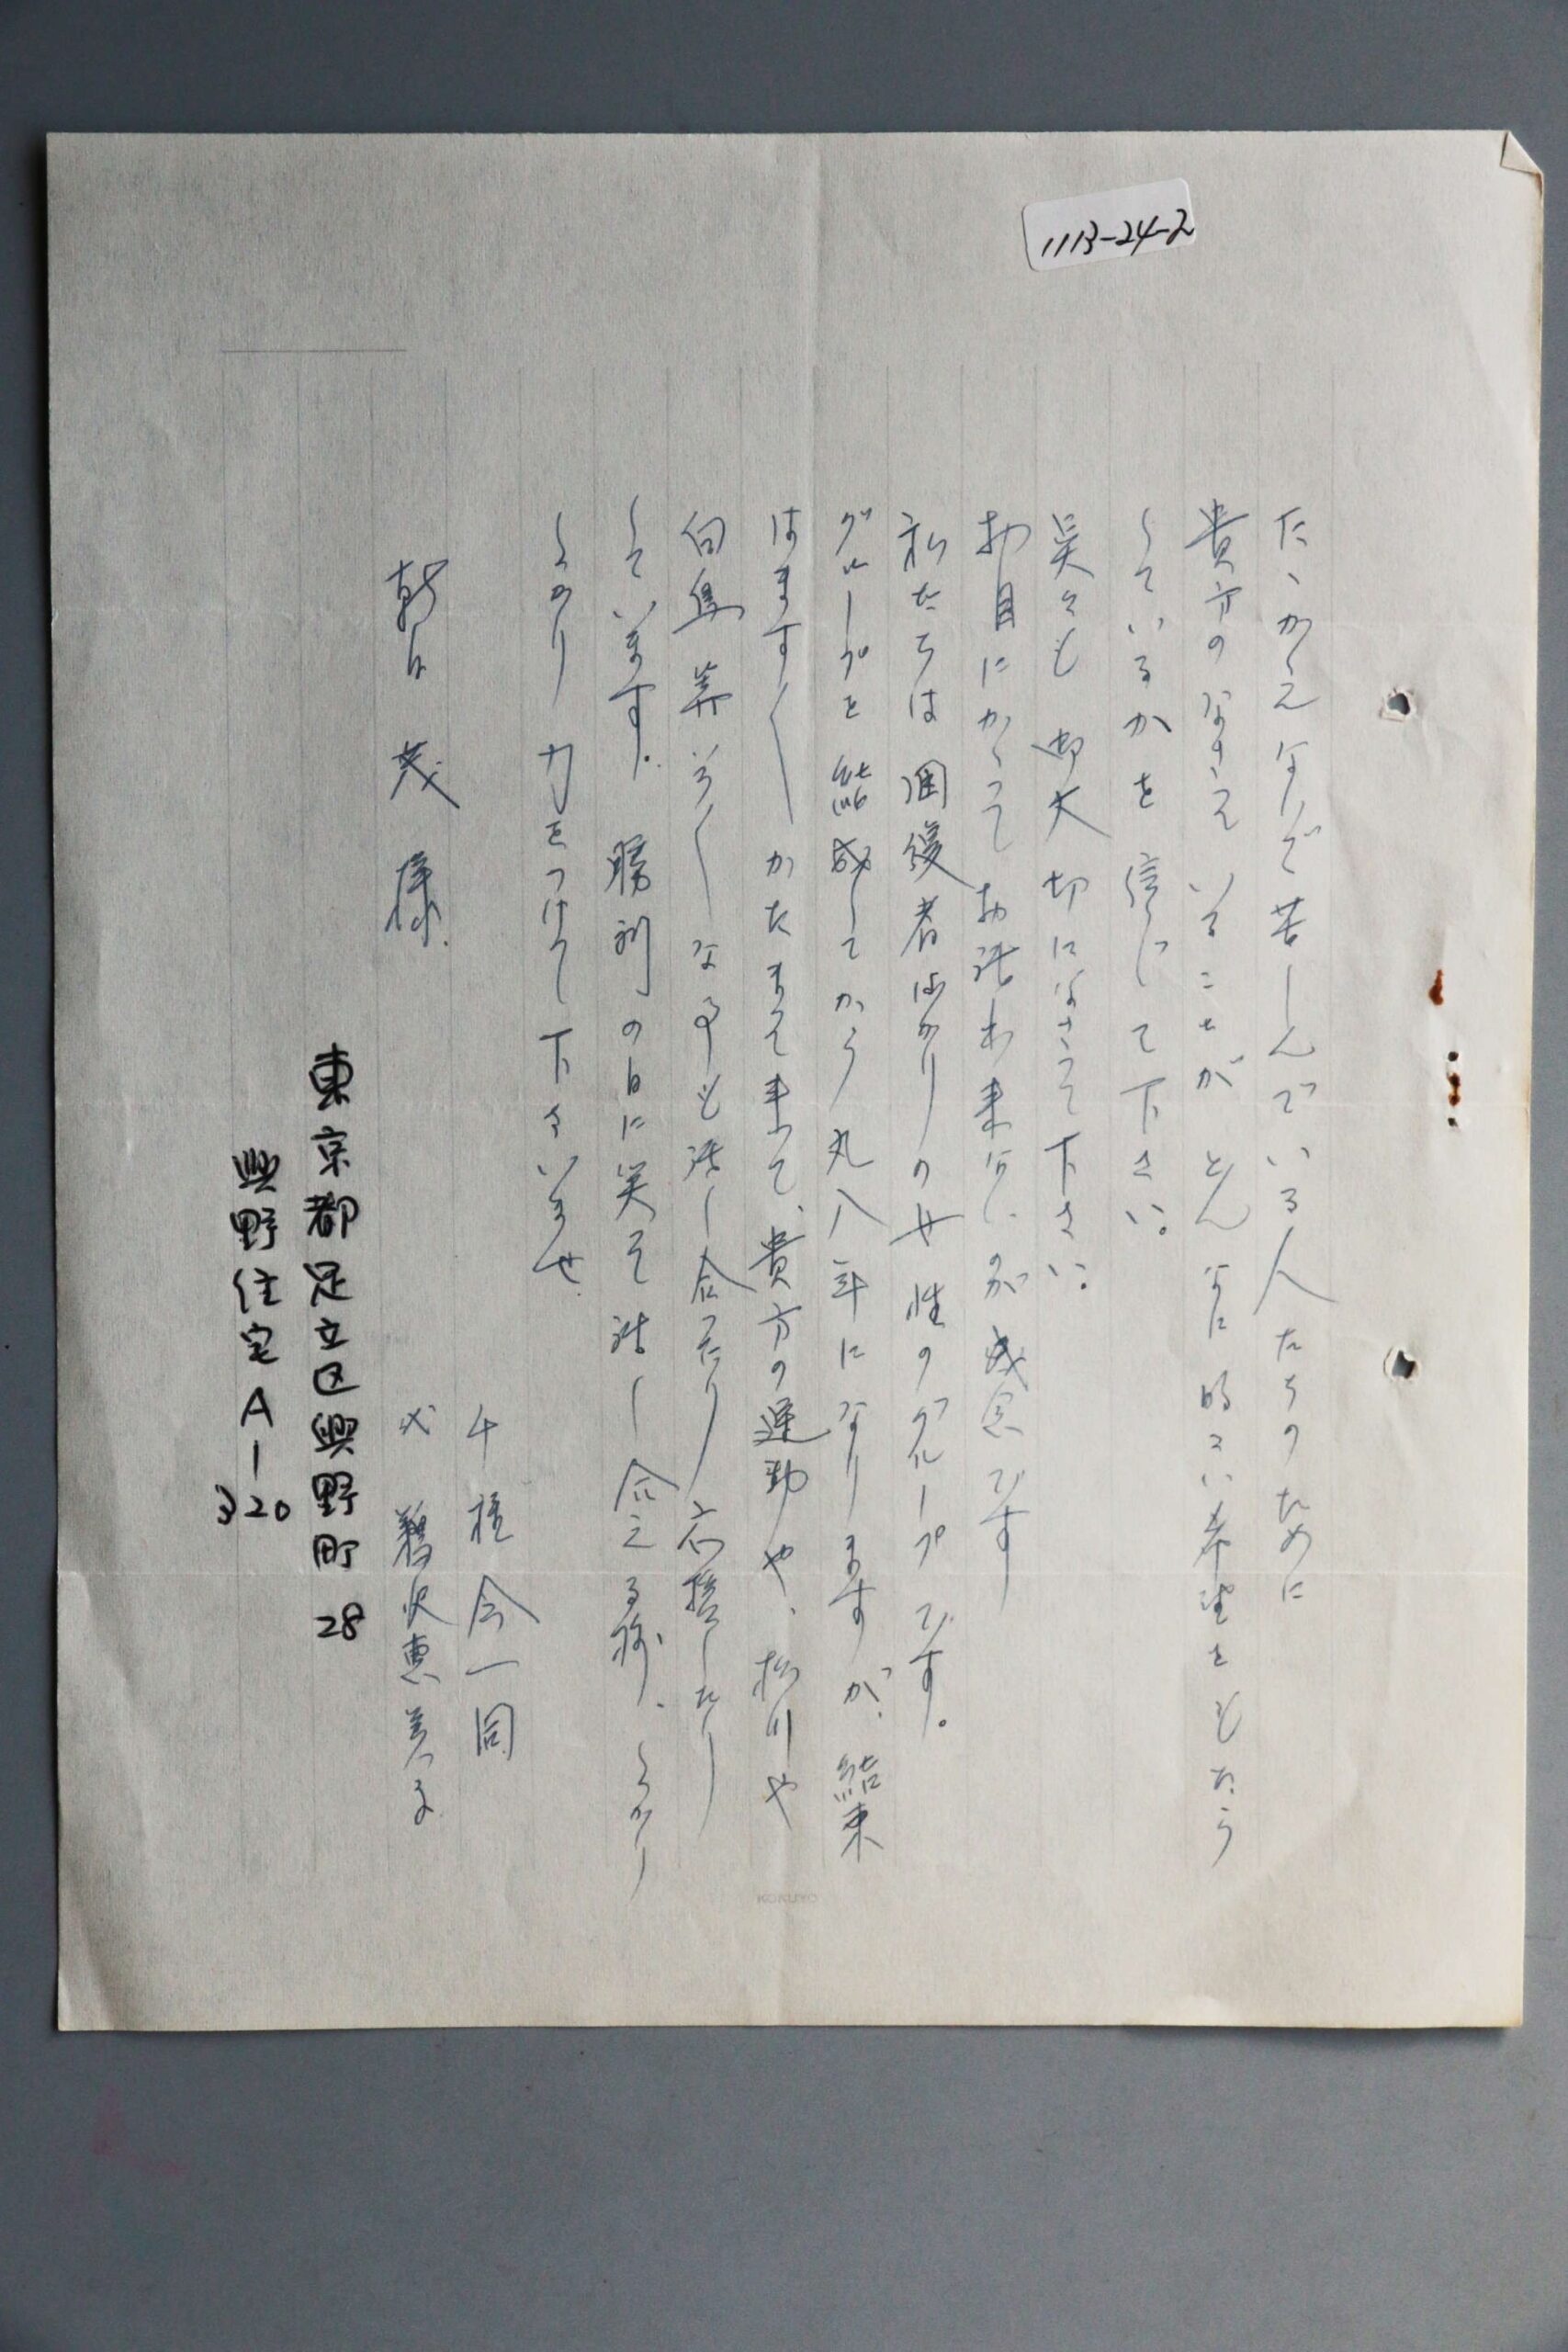 1113-24-2
たゝかえないで苦しんでいる人たちのために
貴方のなさっていることが どんなに明るい希望をもたら
しているかを 信じて下さい。
呉々も 御大切になさって下さい。
お目にかゝって お話出来ないのが残念です
私たちは 回復者ばかりの女性のグループです。
グループを結成してから 丸八年になりますが、結束
はますますかたまって来て、貴方の運動や、松川や
白鳥 等いろいろな事も話し合ったり 応援したり
しています。 勝利の日に笑って話し合える様、しっかり
しっかり 力をつけて下さいませ
千種会一同
代
朝日 茂 様
東京都足立区興野町 28
興野住宅 A-320
KOKUYO